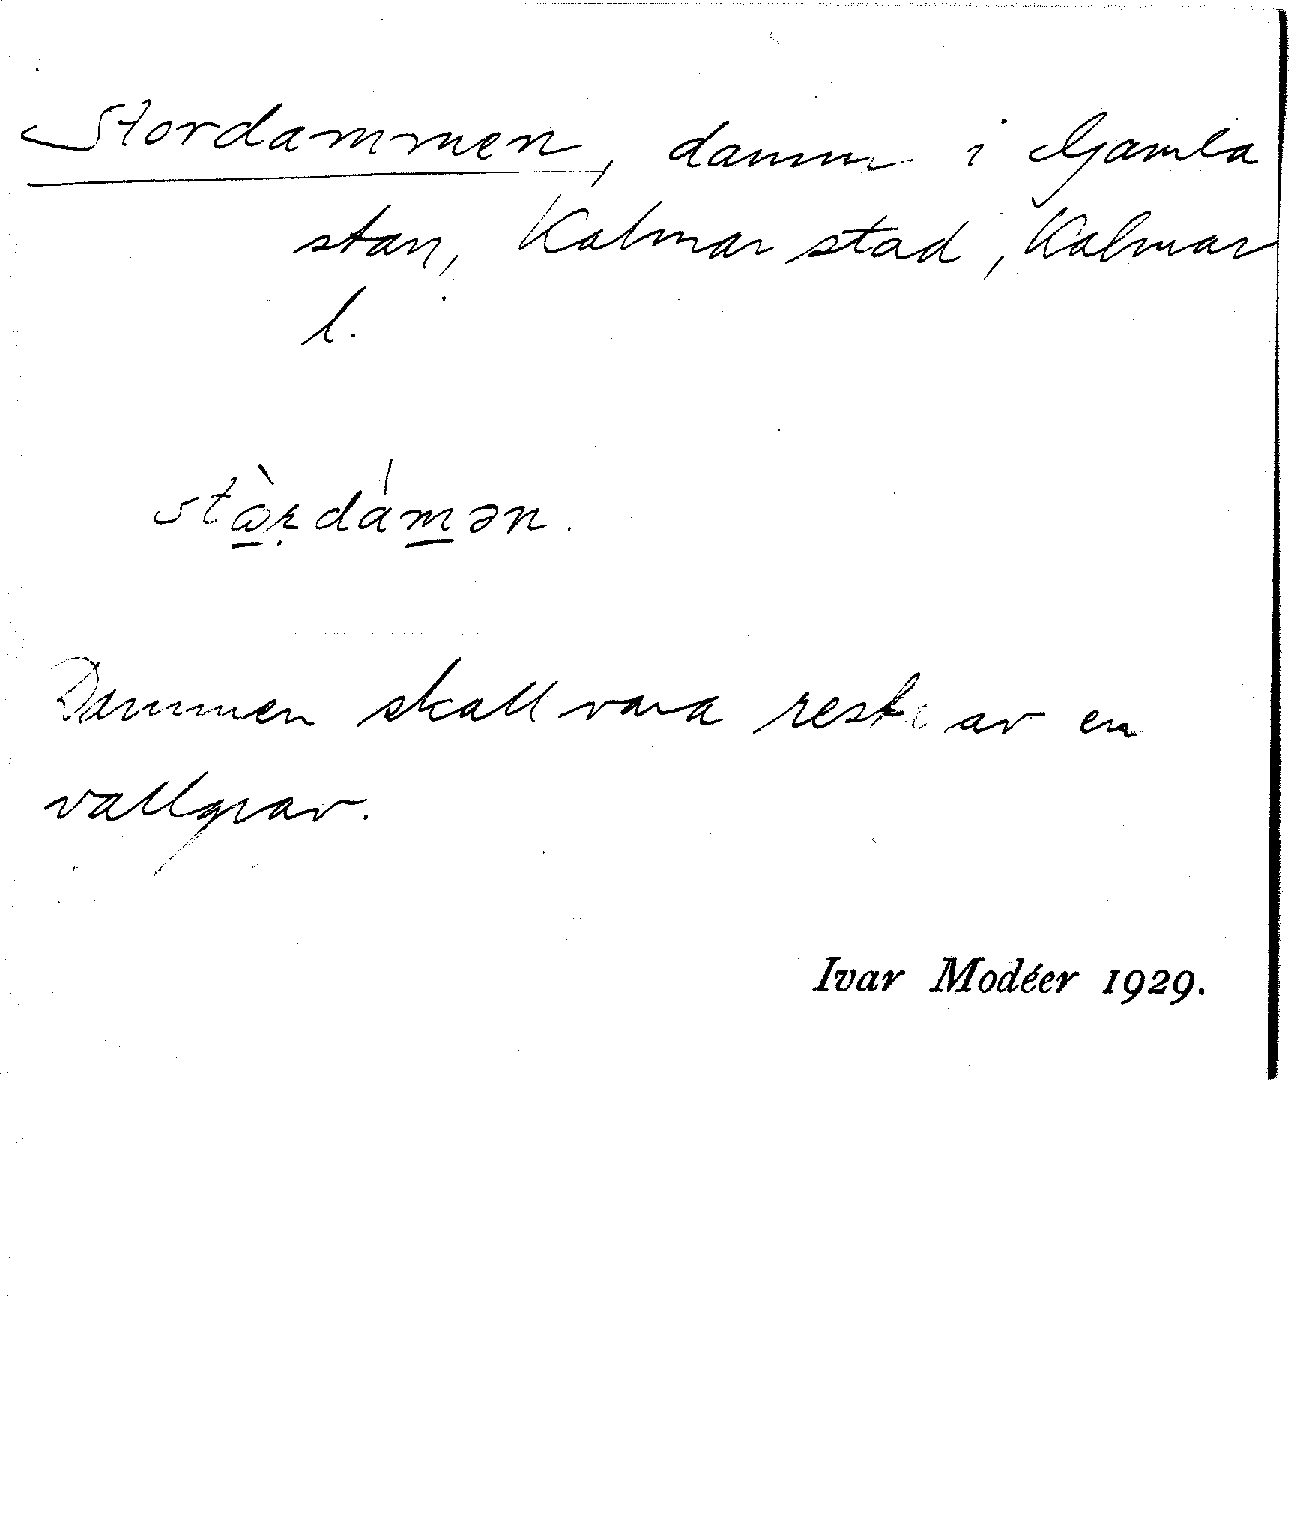 Stordammen, damm i Gamla
stan, Kalmar stad, Kalmar
l.
stὼ̲ṛdám̲ən.
Dammen skall vara rest av en
vallgrav.
Ivar Modéer 1929.